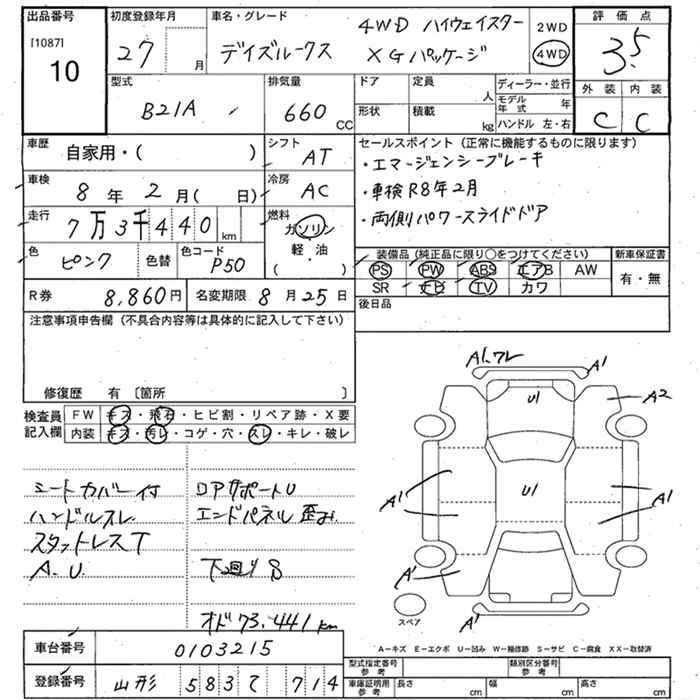 出品番号 初度登録年月 車名・グレード 評価点
[1087]
10
27 月
デイズルークス
4WD ハイウェイスター
XGパッケージ
2WD
4WD
3.5
外装 内装
C C
型式 排気量 ドア 定員 ディーラー・並行
B21A 660 CC
人
形状 積載 kg
モデル年式 年
ハンドル 左・右
車歴 自家用・( )
シフト AT
車検 8年2月( 日)
冷房 AC
走行 7万3千440km
燃料 ガソリン
軽・油
( )
色 ピンク 色替
色コード P50
セールスポイント (正常に機能するものに限ります)
・エマージェンシーブレーキ
・車検R8年2月
・両側パワースライドドア
装備品 (純正品に限り○をつけてください) 新車保証書
PS PW ABS エアB AW 有・無
SR ナビ TV カワ
後日品
R券 8,860円 名変期限 8月25日
注意事項申告欄 (不具合内容等は具体的に記入して下さい)
修復歴 有 〔箇所 〕
検査員記入欄
FW キズ・飛石・ヒビ割・リペア跡・X要
内装 キズ・汚レ・コゲ・穴・スレ・キレ・破レ
シートカバー付
ハンドルスレ
スタットレスT
A.U
コアサポートU
エンドパネル歪み
下回りS
オド73,441km
A1.ワレ
A1
A2
U1
U1
A1
A1
A1
A1
スペア
A-キズ E-エクボ U-凹み W-補修跡 S-サビ C-腐食 XX-取替済
車台番号 0103215
登録番号 山形 583 て 714
型式指定番号 参考
類別区分番号 参考
車庫証明用 参考
長さ cm 幅 cm 高さ cm